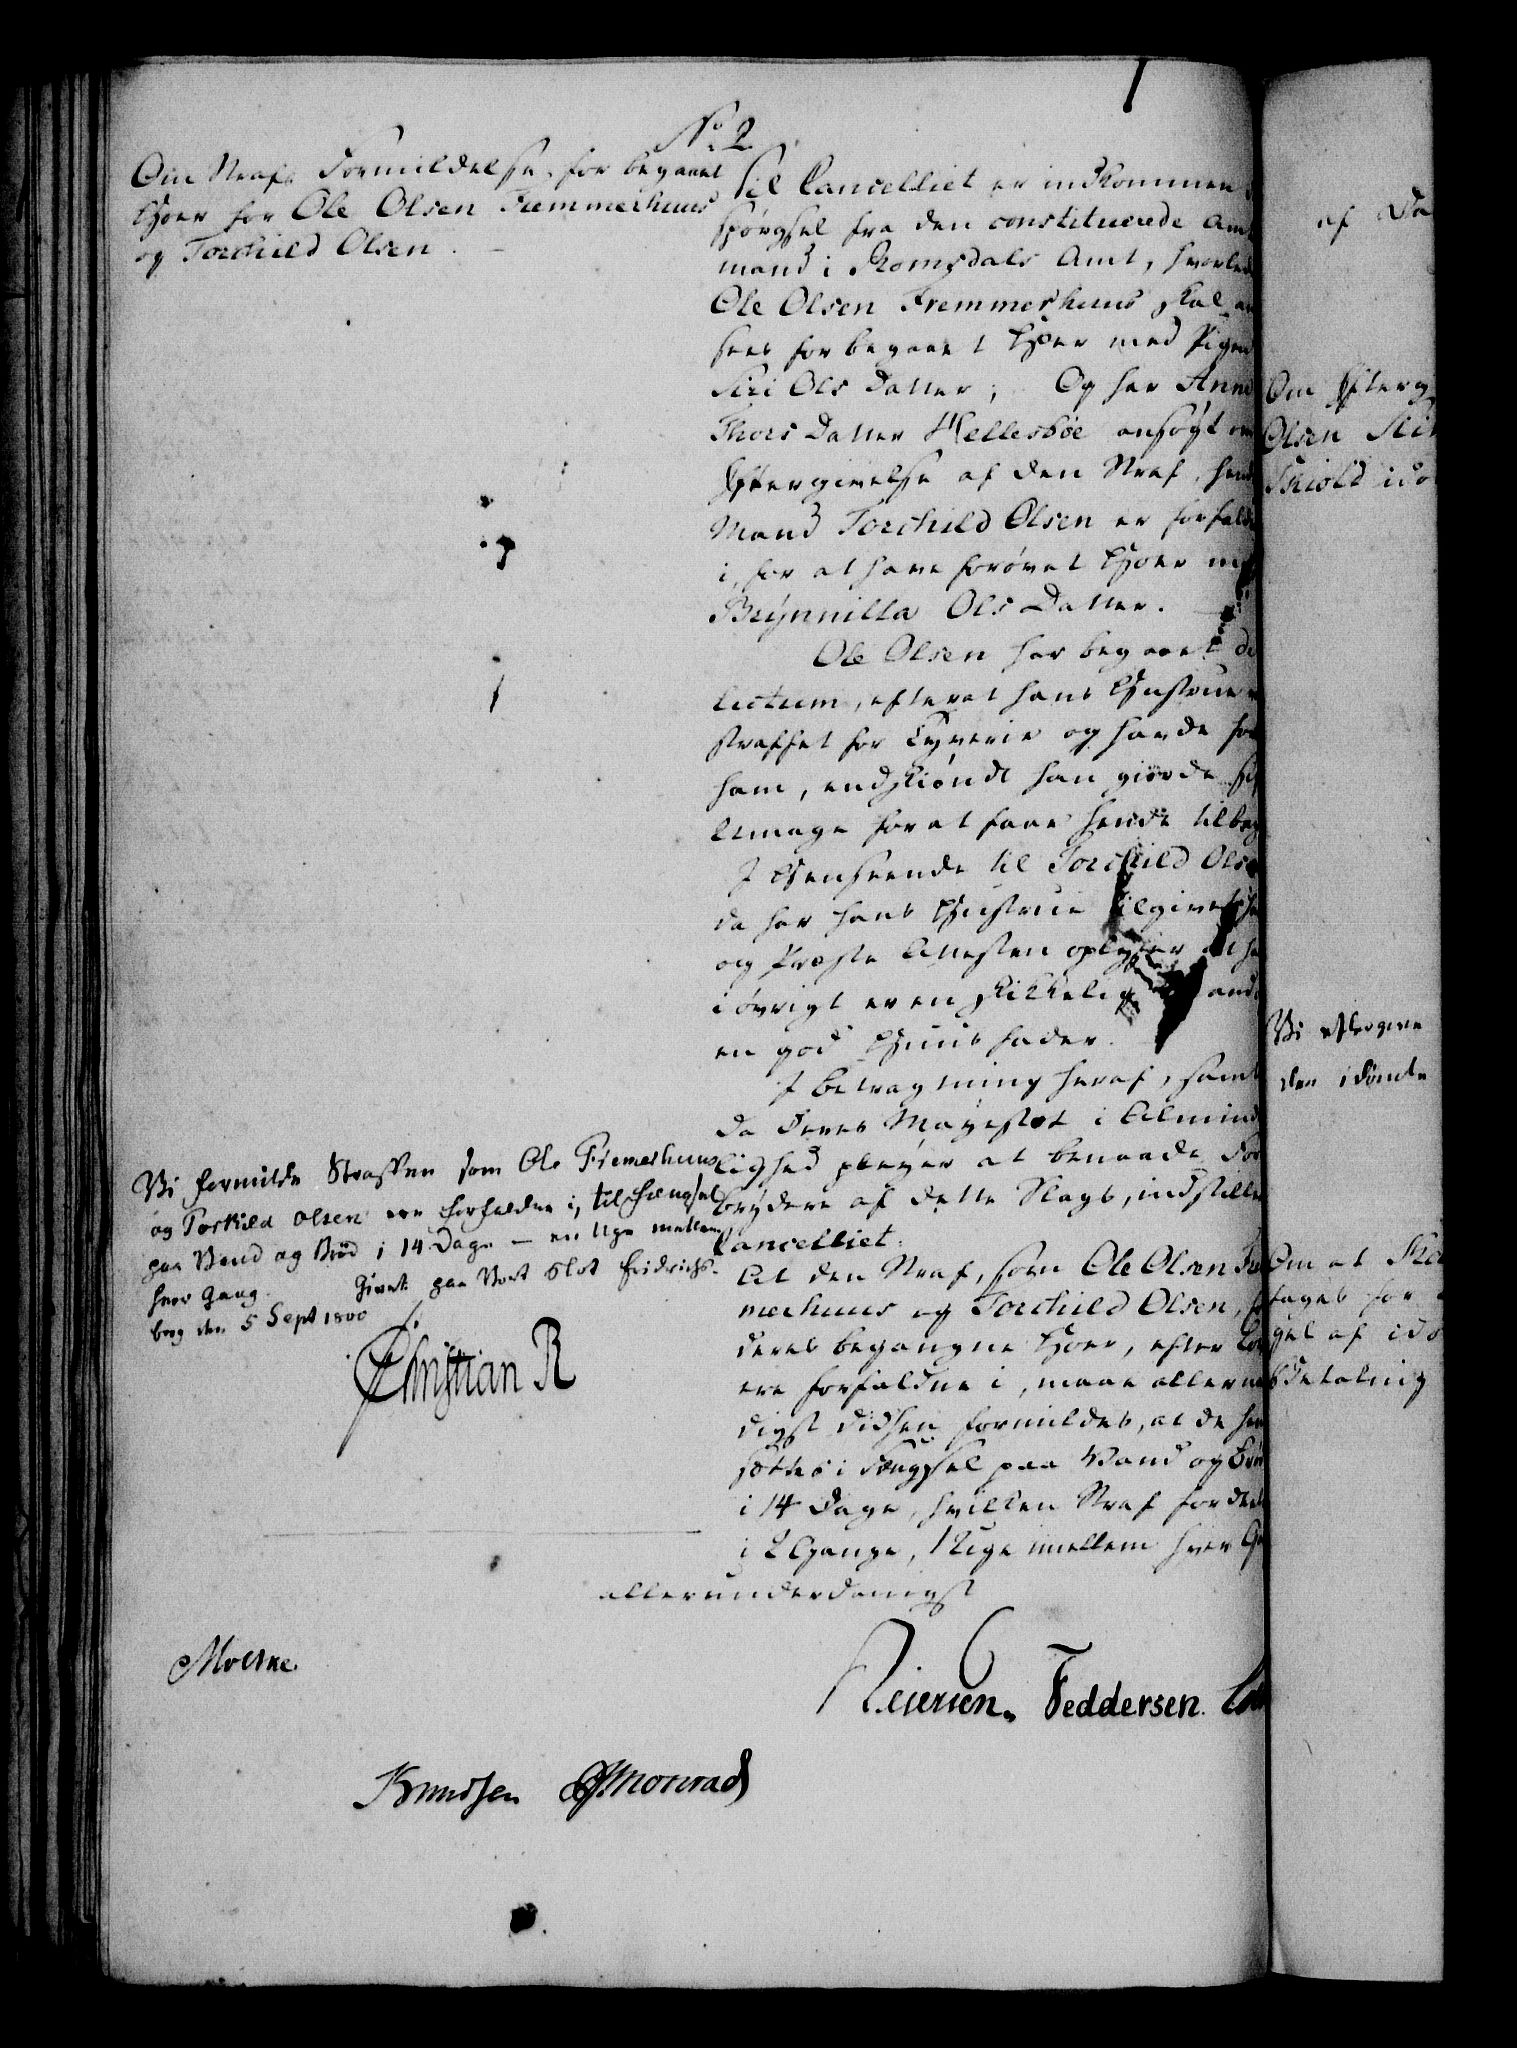 No 2
Om Strafs Formildelse for begaaet
Hoer for Ole Olsen Fremmerhuus
og Torchild Olsen.
Til Cancelliet er indkommen
spørgsel fra den constituerede Amt
mand i Romsdals Amt, hvorled
Ole Olsen Fremmerhuus skal an
sees for begaaet Hoer med Pigen
Siri Ols Datter; Og har Anne
Thors Datter Hellesbøe ansøgt om
Eftergivelse af den Straf, hend
Mand Torchild Olsen er forfald
i, for at have forøvet Hoer med
Brynnilla Ols Datter.
Ole Olsen har begaaet de
lictum, efterat hans Hustrue
straffet for Tyverie og havde for
ham, endskiøndt han giorde sig
Umage for at faae hende tilbag
I Henseende til Torchild Olse
da har hans Hustrue tilgivet ha
og Præste Attesten oplyser at ha
i øvrigt er en skikkelig Mand
en god Huusfader.
I Betragtning heraf, samt
da Deres Majestæt i Almind
lighed pleyer at benaade For
brydere af dette Slags, indstiller
Cancelliet:
At den Straf, som Ole Olsen Fre
merhuus og Torchild Olsen, for
deres begangne Hoer, efter Lov
ere forfaldne i, maae allerna
digst didhen formildes, at de hen
sættes i Fængsel paa Vand og Brød
i 14 Dage, hvilken Straf fordele
i 2 Gange, 1 Uge imellem hver Ga
allerunderdanigst
Vi formilde Straffen som Ole Fremerhuus
og Torkild Olsen ere forfalden i, til Fængsel
paa Vand og Brød i 14 Dage – en Uge mellem
hver Gang. Givet paa Vort Slot Fridrichs-
berg den 5 Sept 1800
Christian R
Moltke
Reiersen. Feddersen.
Knudsen Monrad
af Da
Om Efterg
Olsen
Skiold
Vi eftergive
den idømte
Om at
tages for
gel af idø
Betaling